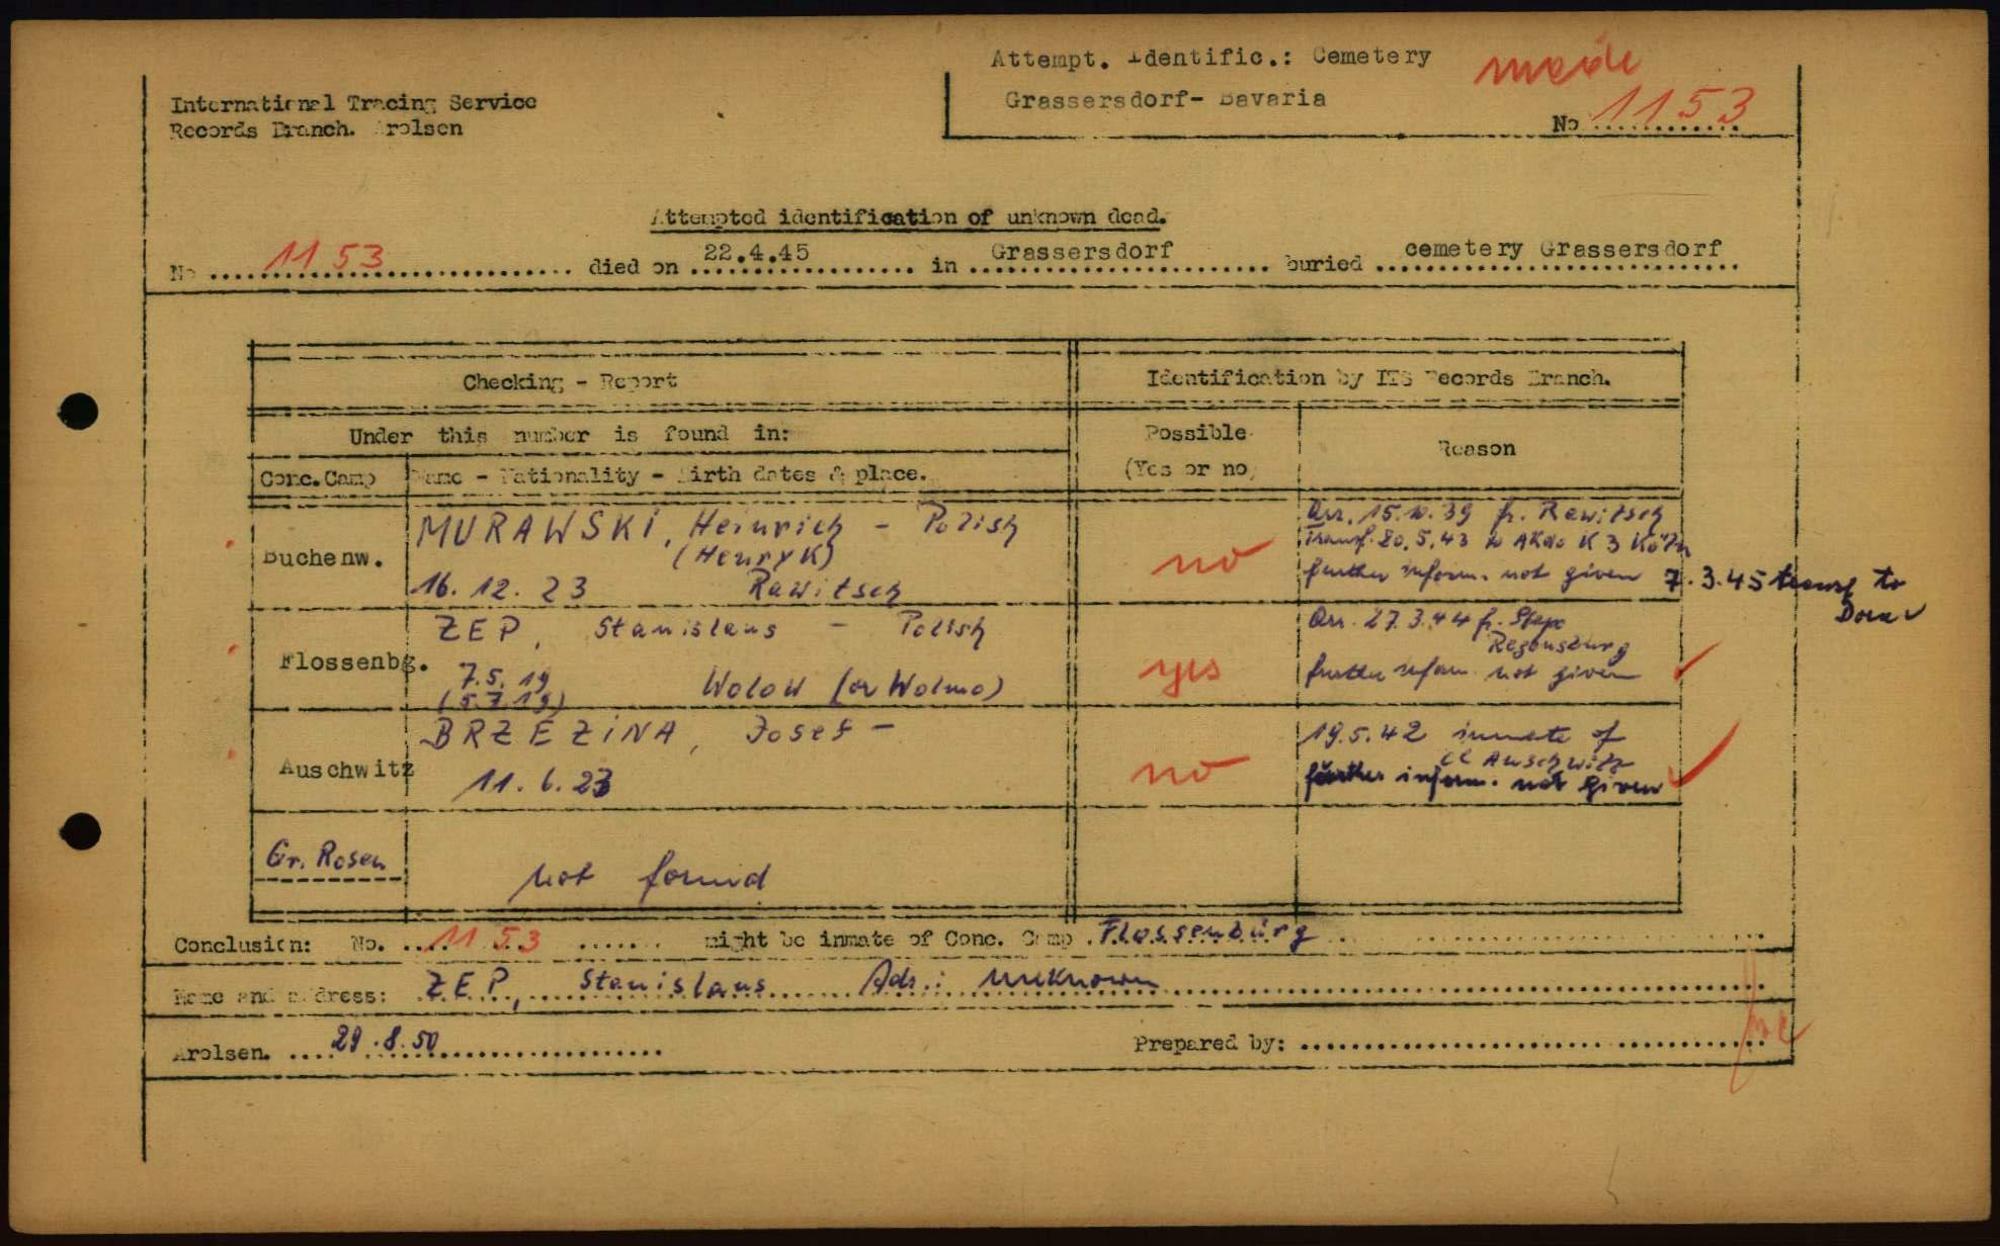 Attempt. Identific.: Cemetery
Grassersdorf- Bavaria
No 1153
International Tracing Service
Records Branch. Arolsen
Attempted identification of unknown dead.
No 1153 died on 22.4.45 in Grassersdorf buried cemetery Grassersdorf
Checking - Report
Identification by ITS Records Branch.
Under this number is found in:
Possible (Yes or no)
Reason
Conc.Camp
Name - Nationality - Birth dates & place.
Buchenw.
MURAWSKI, Heinrich - Polish
(Henryk)
16. 12. 23 Rawitsch
no
Arr. 15.10.39 fr. Rawitsch
Transf. 20.5.43 to AKdo K 3 Köln
further inform. not given 7.3.45 transf to
Dora
Flossenbg.
ZEP, Stanislaus - Polish
7.5.19
(5.7.19) Wolow (or Wolmo)
yes
Arr. 27.3.44 fr. Stapo
Regensburg
further inform. not given
Auschwitz
BRZEZINA, Josef -
11.6.23
no
19.5.42 inmate of
CC Auschwitz
further inform. not given
Gr. Rosen
not found
Conclusion: No. 1153 might be inmate of Conc. Camp Flossenbürg
Name and address: ZEP, Stanislaus Adr.: unknown
Arolsen. 29.8.50 Prepared by: